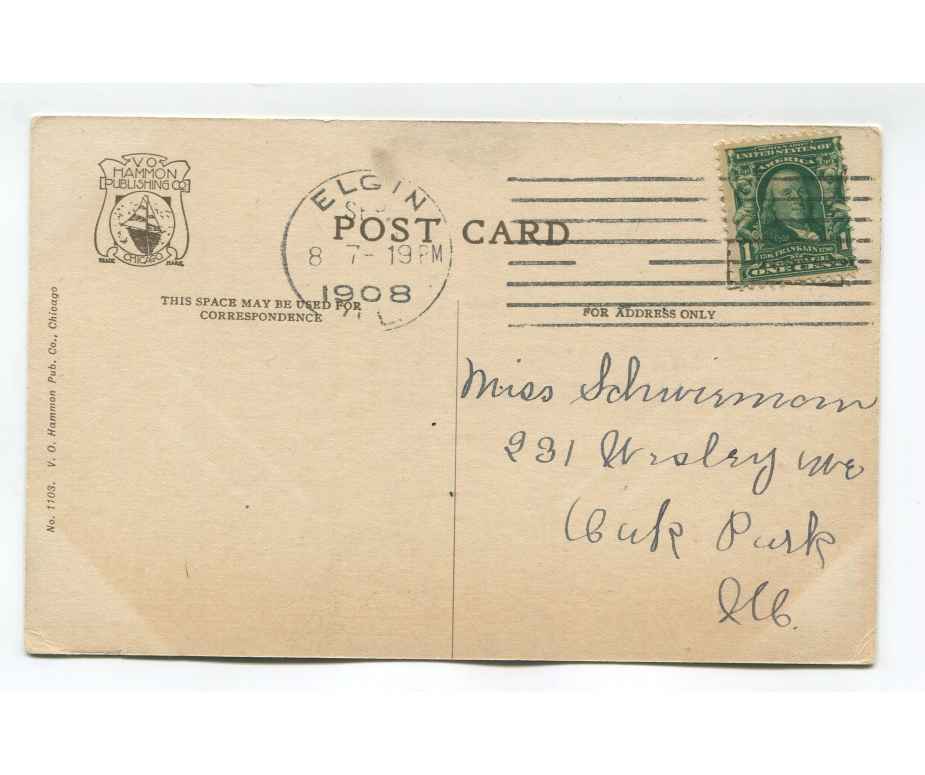 V.O.
HAMMON
PUBLISHING CO
TRADE CHICAGO MARK
ELGIN
SEP
8 7-19PM
1908
ILL
POST CARD
UNITED STATES OF
AMERICA
1 FRANKLIN 1
ONE CENT
THIS SPACE MAY BE USED FOR
CORRESPONDENCE
FOR ADDRESS ONLY
No. 1103. V. O. Hammon Pub. Co., Chicago
Miss Schwirmann
231 Wesley Ave
Oak Park
Ill.